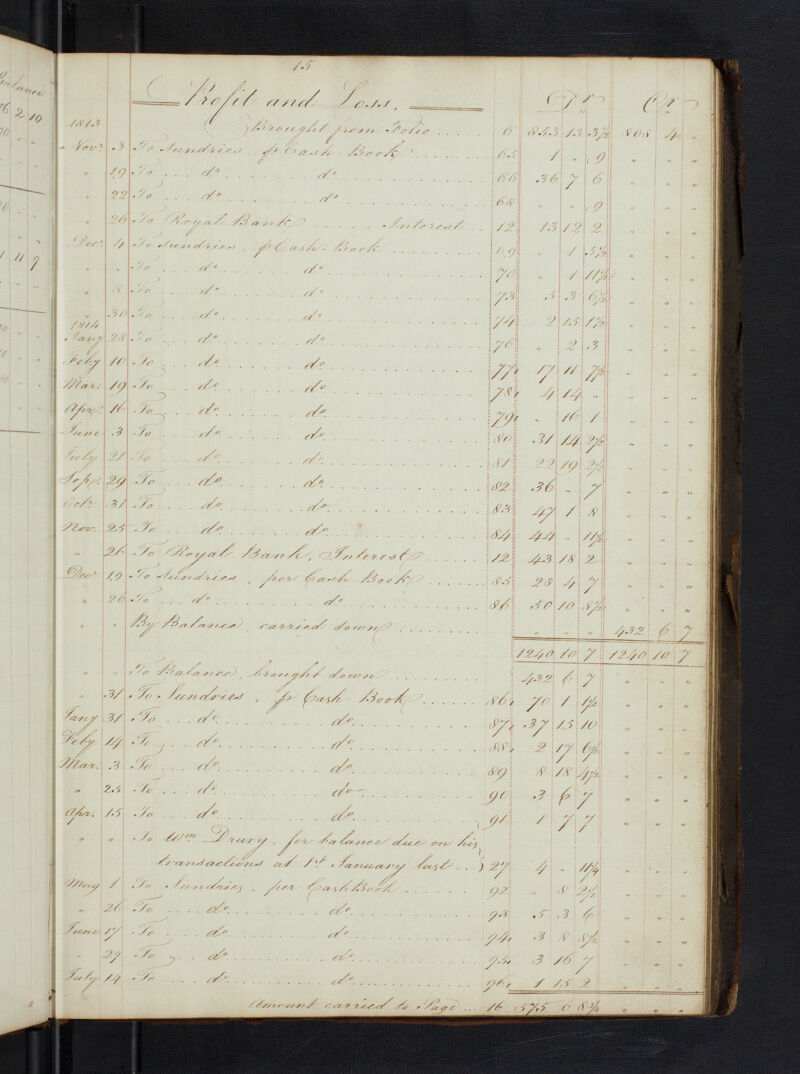 Balance
96 2 10
1 11 9
15
Profit and Loss. Dr Cr
1813 Brought from Folio 6 853 13 3½ 808 4 „
„ Novr 3 To Sundries, p Cash-Book 65 1 „ 9 „ „ „
„ 19 To do do 66 36 7 6 „ „ „
„ 22 To do do 68 „ „ 9 „ „ „
„ 26 To Royal Bank Interest 12 13 12 2 „ „ „
Decr 4 To Sundries, p Cash-Book 69 „ 1 5½ „ „ „
„ „ To do do 70 „ 1 11½ „ „ „
„ 8 To do do 73 5 3 6½ „ „ „
„ 30 To do do 74 2 15 1½ „ „ „
1814
Jany 28 To do do 76 „ 2 3 „ „ „
Feby 10 To do do 77 17 11 7½ „ „ „
Mar. 19 To do do 78 4 14 „ „ „ „
Aprl. 16 To do do 79 „ 16 1 „ „ „
June 3 To do do 80 31 14 2½ „ „ „
July 21 To do do 81 22 19 2½ „ „ „
Sepr. 29 To do do 82 36 „ 7 „ „ „
Octr. 31 To do do 83 47 1 8 „ „ „
Nov. 25 To do do 84 44 „ 11½ „ „ „
„ 26 To Royal Bank, Interest 12 43 18 2 „ „ „
Decr 19 To Sundries, per Cash-Book 85 28 4 7 „ „ „
„ 26 To do do 86 50 10 8½ „ „ „
„ „ By Balance, carried down „ „ „ 432 6 7
1240 10 7 1240 10 7
„ „ To Balance, brought down 432 6 7 „ „ „
„ 31 To Sundries, p Cash-Book 86 70 1 1½ „ „ „
Jany 31 To do do 87 37 15 10 „ „ „
Feby 14 To do do 88 2 17 6½ „ „ „
Mar. 3 To do do 89 8 18 4½ „ „ „
„ 25 To do do 90 3 6 7 „ „ „
Apr. 15 To do do 91 1 7 7 „ „ „
„ „ To Wm Drury, for balance due on his
transactions at 1st January last 27 4 „ 11¼ „ „ „
May 1 To Sundries, per Cash Book 92 „ 8 2½ „ „ „
„ 26 To do do 93 5 3 6 „ „ „
June 17 To do do 94 3 8 8½ „ „ „
„ 29 To do do 95 3 16 7 „ „ „
July 14 To do do 96 1 15 2 „ „ „
Amount carried to Page 16 575 6 8¾ „ „ „